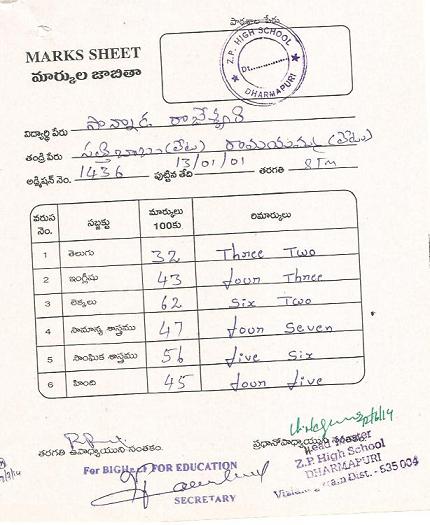 పాఠశాల పేరు
Z.P. HIGH SCHOOL
Dt.
DHARMAPURI
MARKS SHEET
మార్కుల జాబితా
విద్యార్థి పేరు
తండ్రి పేరు
అడ్మిషన్ నెం. 1436 పుట్టిన తేది 13/01/01 తరగతి 8Tm
వరుస నెం. సబ్జక్టు మార్కులు 100కు రిమార్కులు
1 తెలుగు 32 Three Two
2 ఇంగ్లీషు 43 four Three
3 లెక్కలు 62 six Two
4 సామాన్య శాస్త్రము 47 four Seven
5 సాంఘిక శాస్త్రము 56 five Six
6 హింది 45 four five
తరగతి ఉపాధ్యాయుని సంతకం. ప్రధానోపాధ్యాయుని సంతకం
Head Master
Z.P. High School
DHARMAPURI
Dist. - 535 004
For FOR EDUCATION
SECRETARY